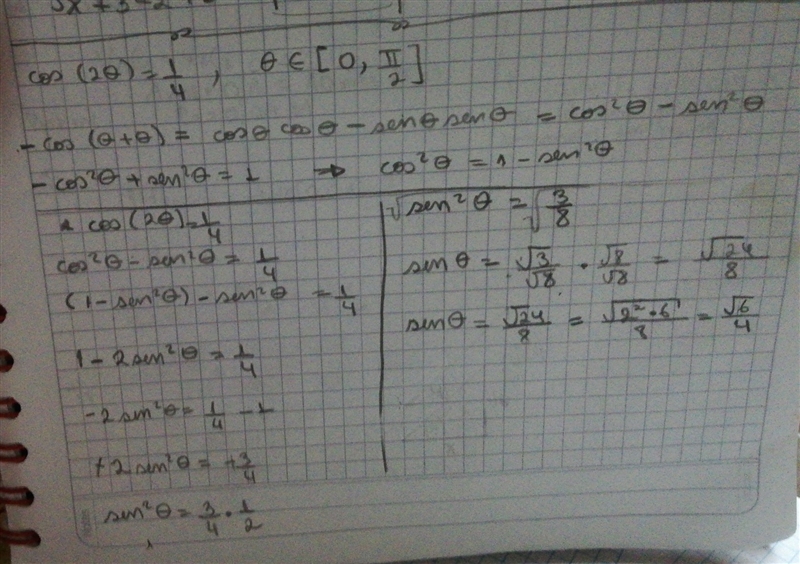 cos (2θ) = 1/4 , θ ∈ [0, π/2]
- cos (θ+θ) = cosθ cosθ - senθ senθ = cos²θ - sen²θ
- cos²θ + sen²θ = 1 → cos²θ = 1 - sen²θ
cos (2θ) = 1/4
cos²θ - sen²θ = 1/4
(1 - sen²θ) - sen²θ = 1/4
1 - 2sen²θ = 1/4
-2sen²θ = 1/4 - 1
+2sen²θ = +3/4
sen²θ = 3/4 · 1/2
√sen²θ = √3/8
senθ = √3/√8 · √8/√8 = √24/8
senθ = √24/8 = √2²·6/8 = √6/4